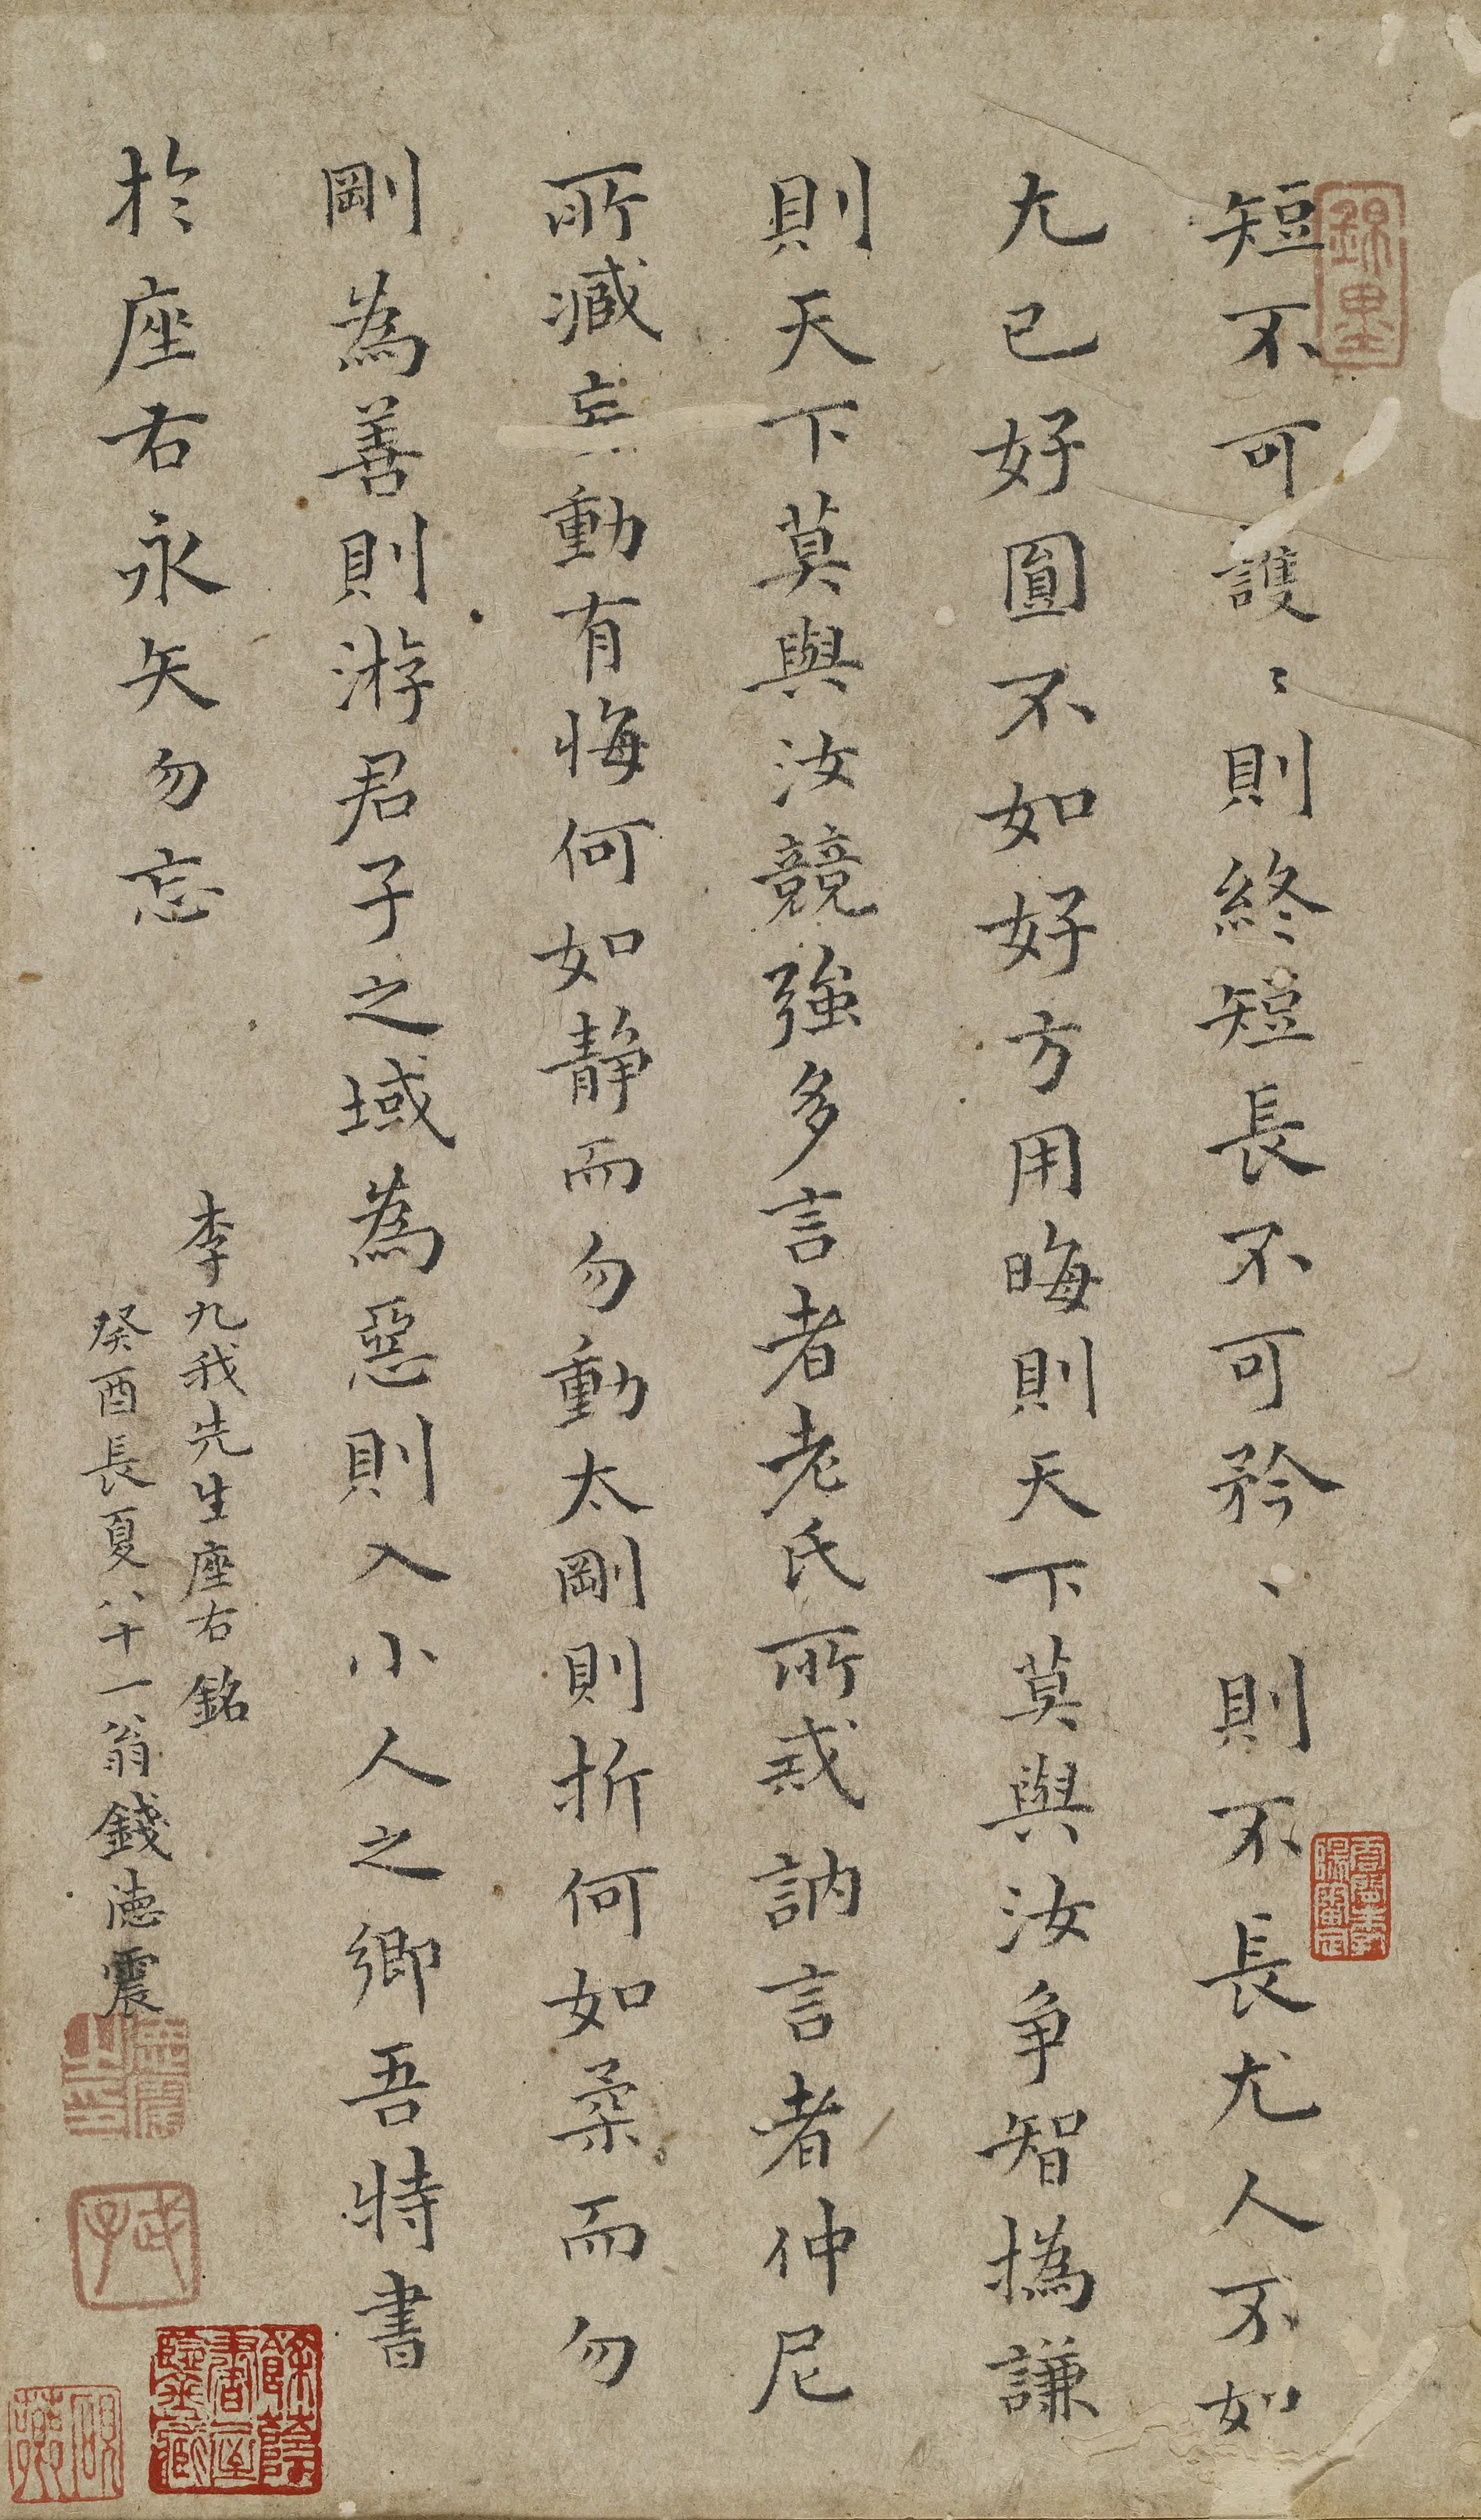 短不可護〻則終短長不可矜〻則不長尤人不如
尤己好圓不如好方用晦則天下莫與汝爭智撝謙
則天下莫與汝競強多言者老氏所戒訥言者仲尼
所臧妄動有悔何如靜而勿動太剛則折何如柔而勿
剛為善則游君子之域為惡則入小人之鄉吾特書
於座右永矢勿忘
李九我先生座右銘
癸酉長夏八十一翁錢德震
錦里
武子